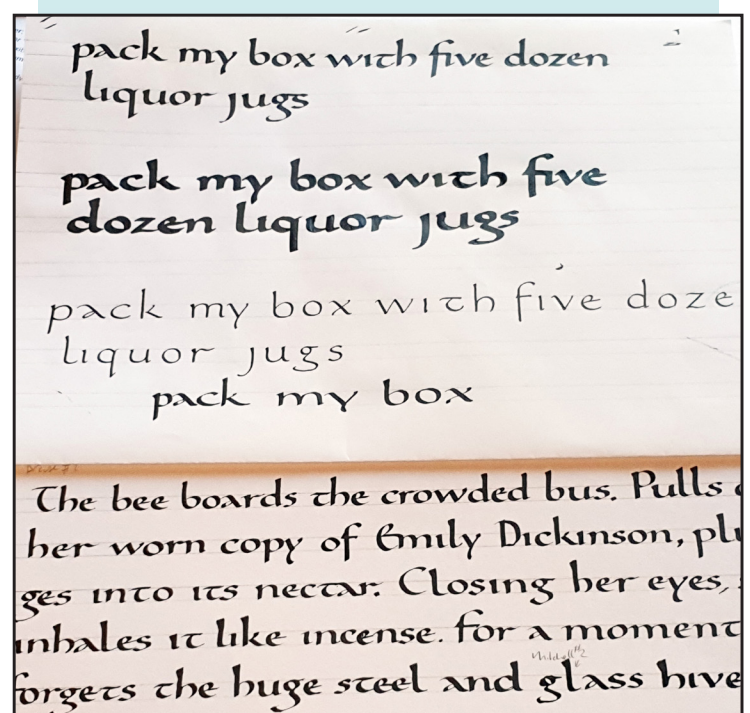 pack my box with five dozen
liquor jugs
pack my box with five
dozen liquor jugs
pack my box with five doze
liquor jugs
pack my box
The bee boards the crowded bus. Pulls
her worn copy of Emily Dickinson, plu
ges into its nectar. Closing her eyes,
inhales it like incense. for a moment
forgets the huge steel and glass hive